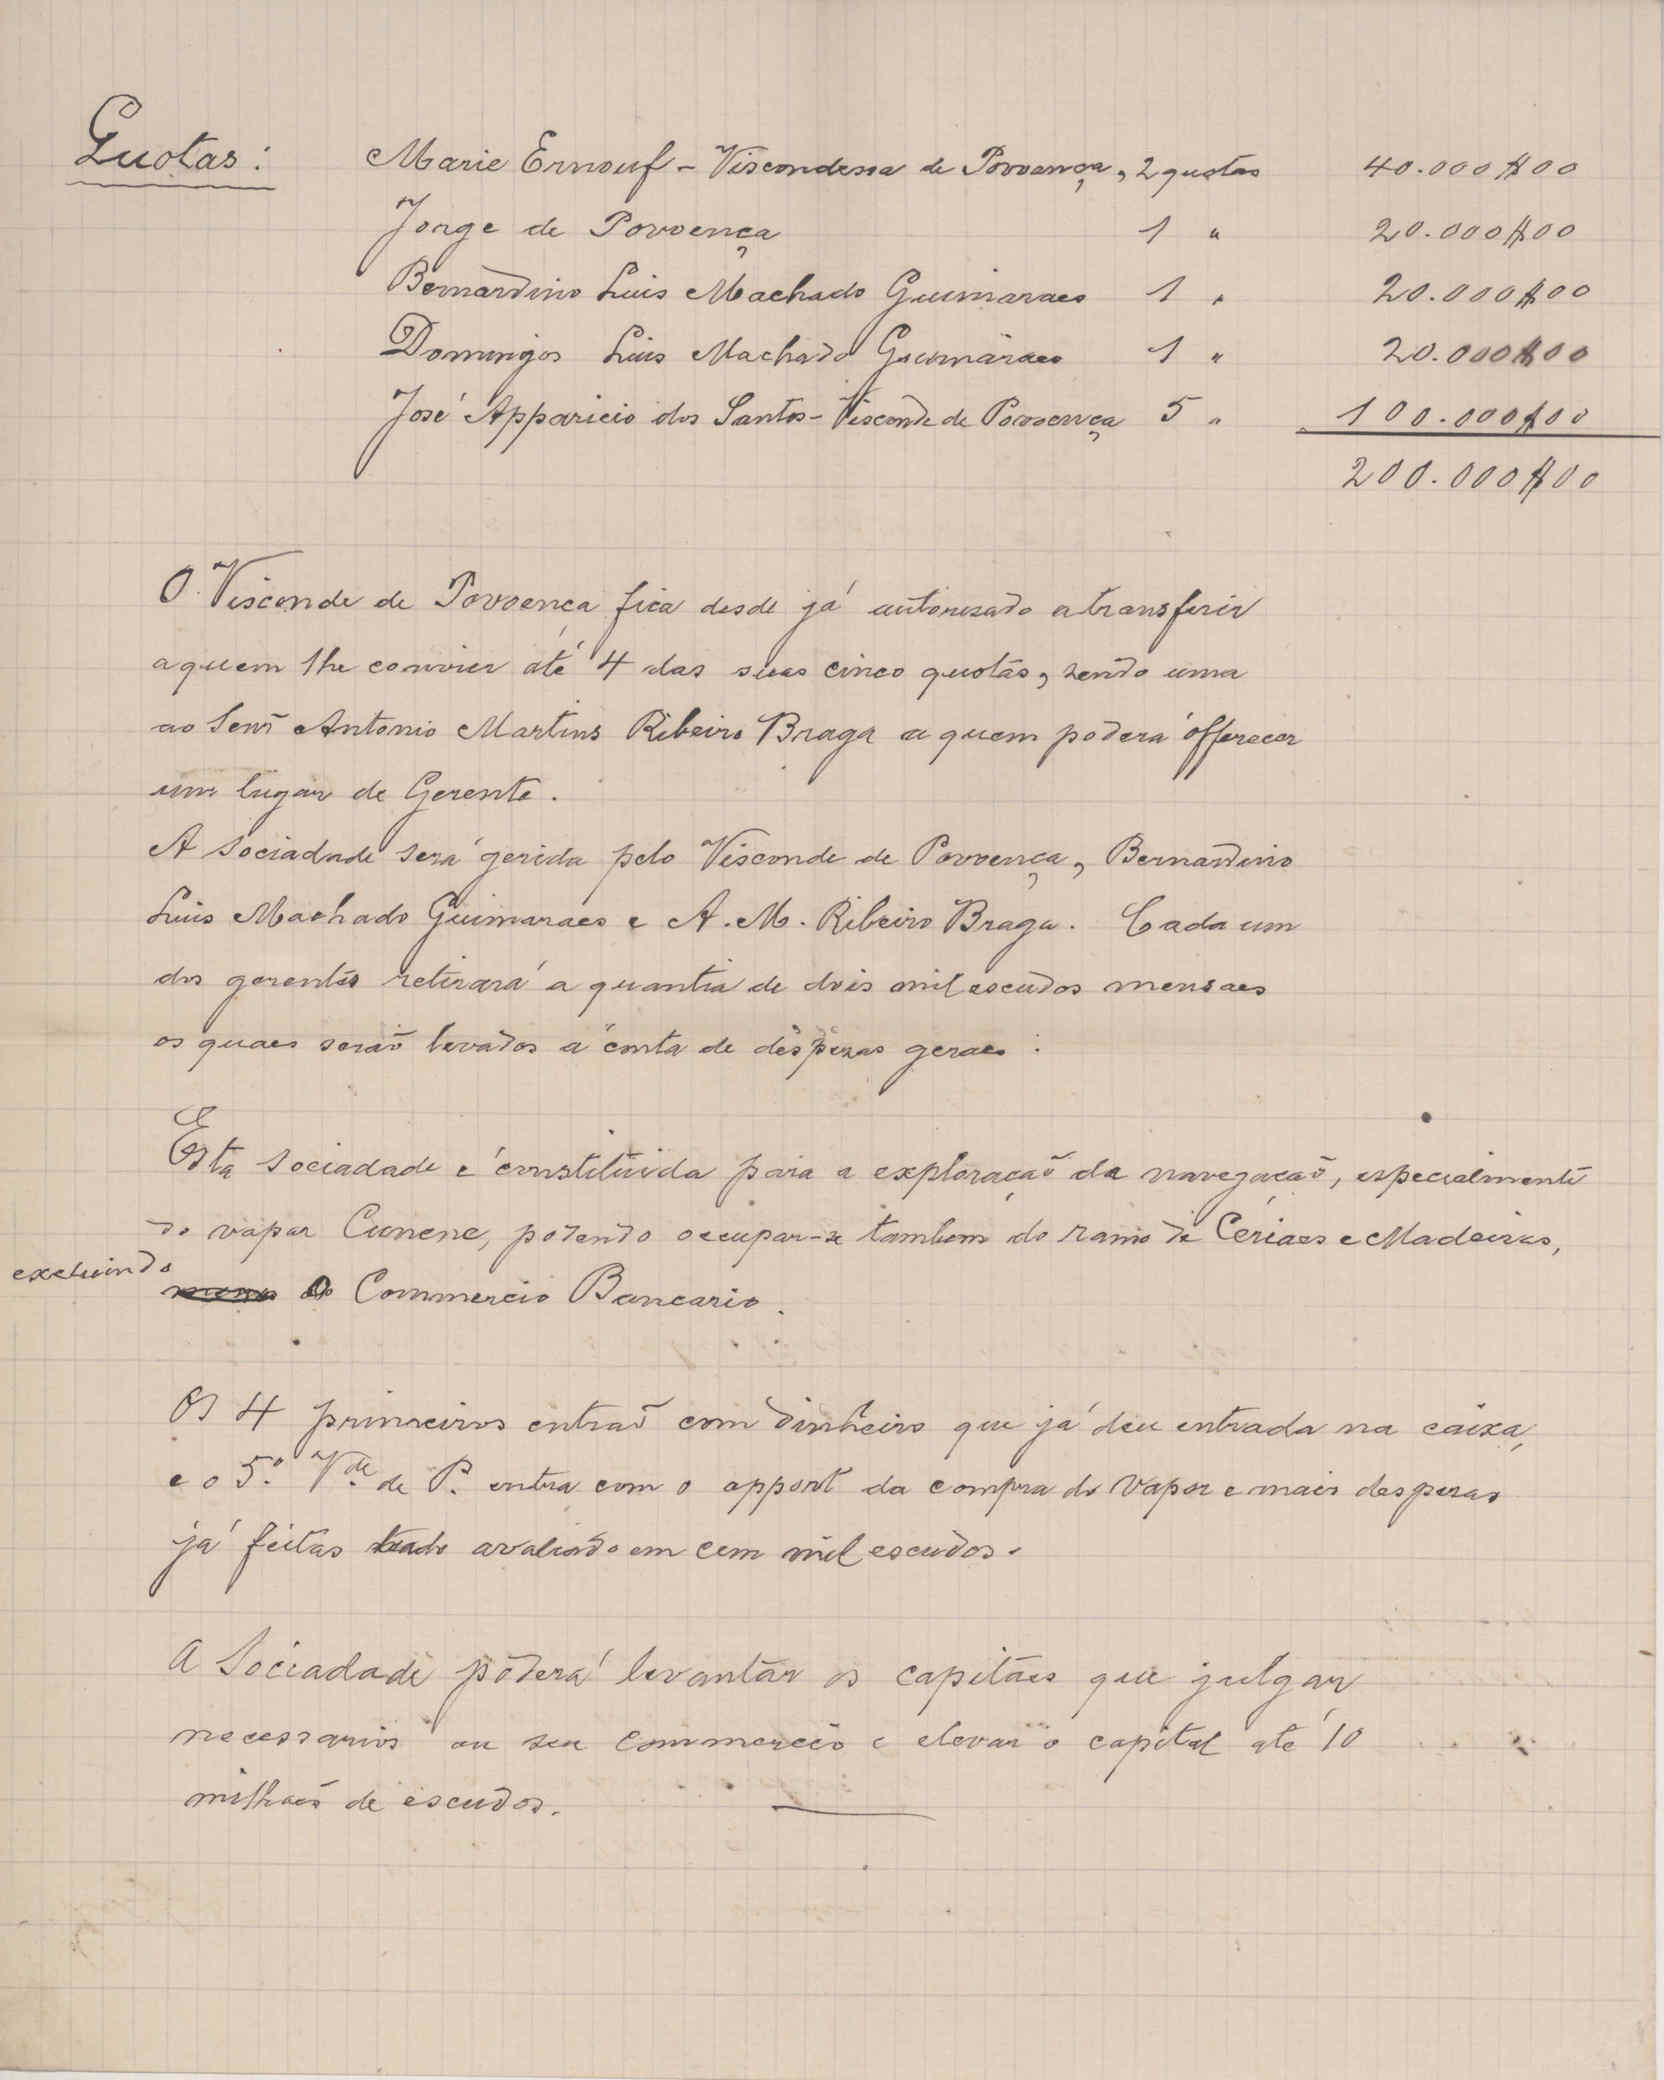 Quotas: Marie Ernouf - Viscondessa de Povoença, 2 quotas 40.000$00
Jorge de Povoença 1 " 20.000$00
Bernardino Luis Machado Guimaraes 1 " 20.000$00
Domingos Luis Machado Guimaraes 1 " 20.000$00
José Apparicio dos Santos - Visconde de Povoença 5 " 100.000$00
200.000$00
O Visconde de Povoença fica desde já autorisado a transferir
a quem lhe convier até 4 das suas cinco quotas, sendo uma
ao Senr Antonio Martins Ribeiro Braga a quem poderá offerecer
um lugar de Gerente.
A Sociadade será gerida pelo Visconde de Povoença, Bernardino
Luis Machado Guimaraes e A. M. Ribeiro Braga. Cada um
dos gerentes retirará a quantia de dois mil escudos mensaes
os quaes serão levados á conta de despezas geraes.
Esta Sociadade é constituida para a exploração da navegação, especialmente
do vapor Cunene, podendo occupar-se tambem do ramo de Ceriaes e Madeiras,
excluindo o Commercio Bancario.
Os 4 primeiros entrão com dinheiro que já deu entrada na caixa,
e o 5º. Vde. de P. entra com o apport da compra do vapor e mais despezas
já feitas tudo avaliado em cem mil escudos.
A Sociadade poderá levantar os capitaes que julgar
necessarios ao seu commercio e elevar o capital até 10
milhões de escudos.